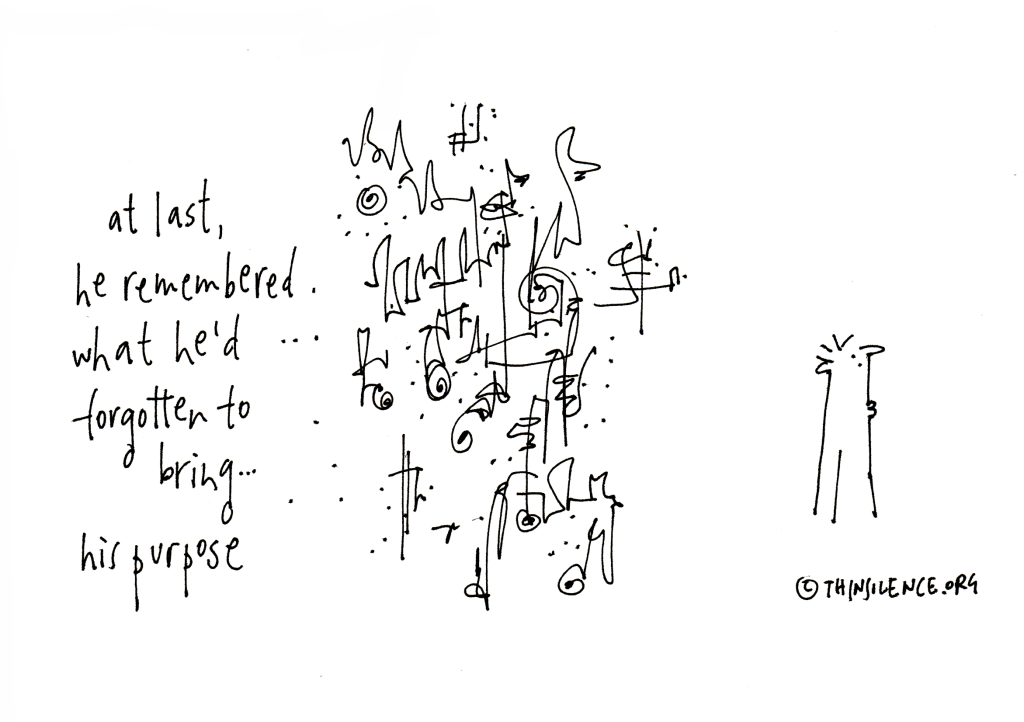 at last,
he remembered
what he'd
forgotten to
bring...
his purpose
© THINSILENCE.ORG